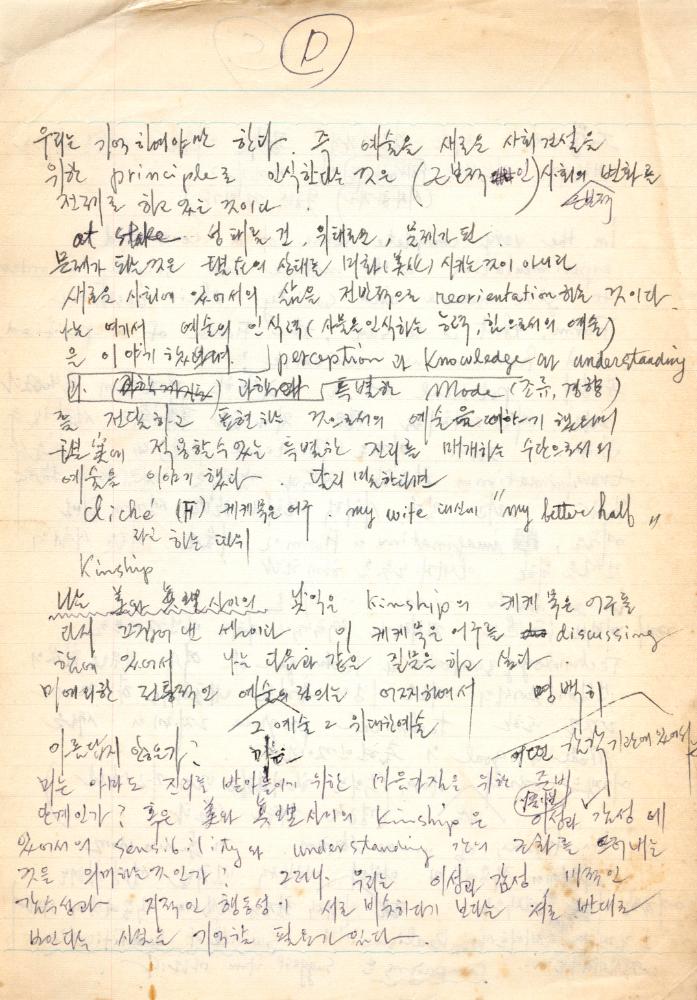 D
우리는 기억하여야만 한다. 즉 예술을 새로운 사회건설을
위한 principle로 인식한다는 것은 (근본적인) 사회의 변화를
근본적
전제로 하고 있는 것이다.
at stake 상태를 건, 위태로운, 문제가 된
문제가 되는것은 현재의 상태를 미화(美化) 시키는것이 아니라
새로운 사회에 있어서의 삶을 전반적으로 reorientation 하는 것이다.
나는 여기서 예술의 인식력(사물을 인식하는 능력, 힘으로서의 예술)
을 이야기 했으며. perception 과 Knowledge and understanding
과학 특별한 mode (조류, 경향)
를 전달하고 표현하는 것으로서의 예술을 이야기 했으며
적용할수있는 특별한 진리를 매개하는 수단으로서의
예술을 이야기 했다 달리 말한다면
cliché (F) 케케묵은 어구. my wife 대신에 "my better half"
라고 하는 따위
Kinship
나는 美와 眞理 사이의 낯익은 kinship의 케케묵은 어구를
다시 끄집어 낸 셈이다 이 케케묵은 어구를 discussing
함에 있어서 나는 다음과 같은 질문을 하고 싶다.
미에 의한 전통적인 예술의 정의는 어찌하여서 명백히
그 예술 그 위대한예술
아름답지 않은가? 어떤 감각기관에 있어서
미는 아마도 진리를 받아들이기 위한 마음가짐을 위한 준비
단계인가? 혹은 美와 眞理사이의 Kinship은 이성과 감성에
있어서의 sensibility와 understanding 간의 조화를 드러내는
것을 의미하는것인가? 그러나. 우리는 이성과 감성 미적인
감수성과 지적인 행동성이 서로 비슷하다기 보다는 서로 반대로
보인다는 사실을 기억할 필요가 있다.